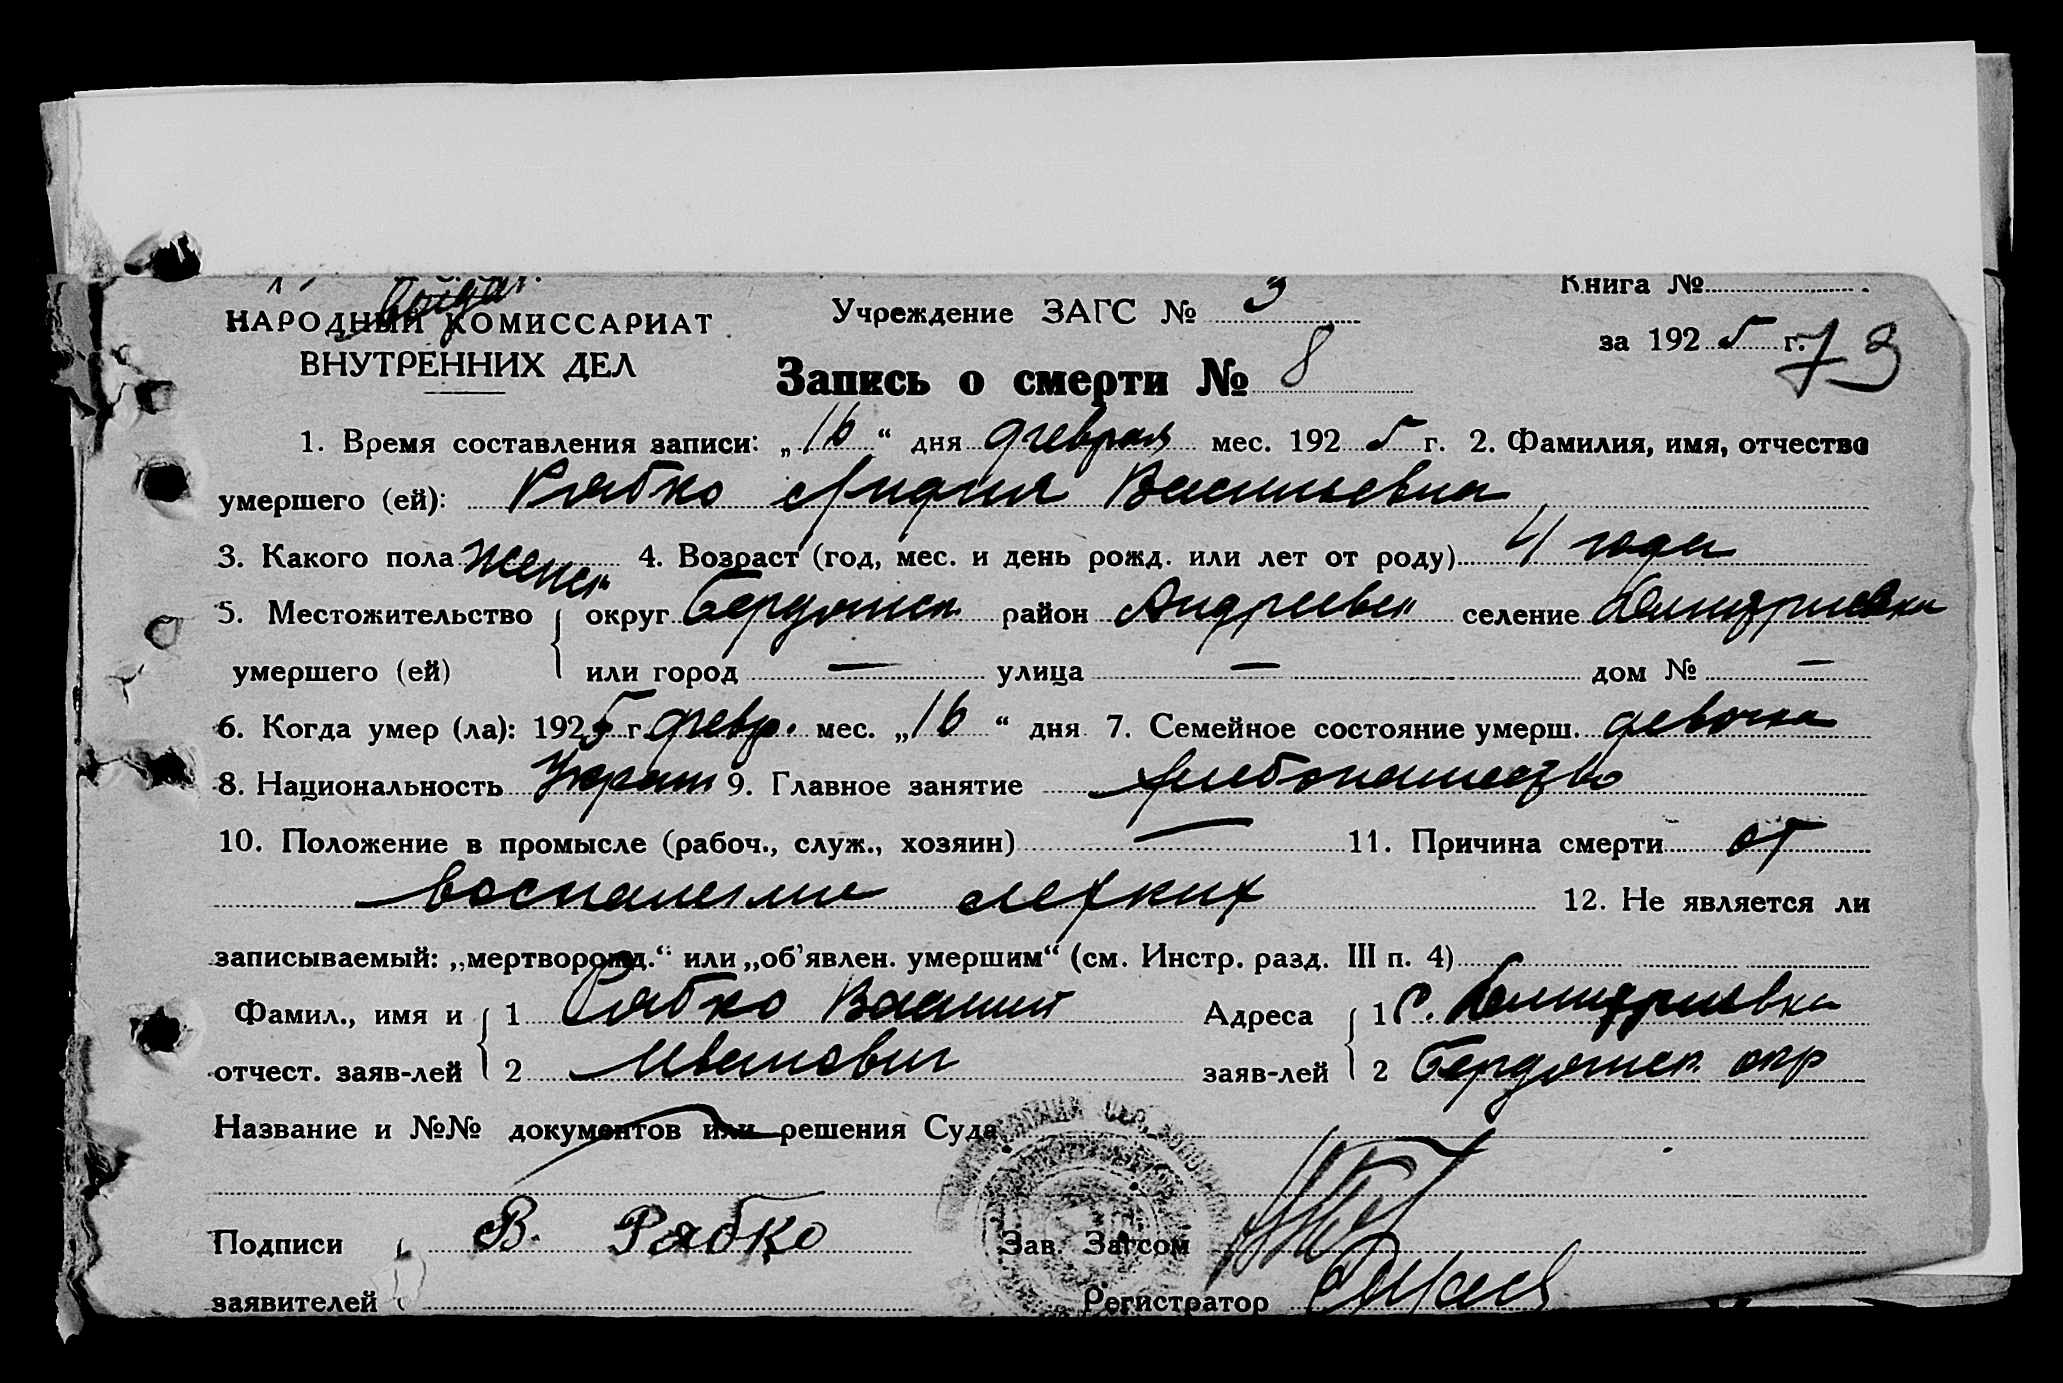 Книга №
НАРОДНЫЙ КОМИССАРИАТ Учреждение ЗАГС № 3
ВНУТРЕННИХ ДЕЛ за 1925 г. 73
Запись о смерти № 8
1. Время составления записи: „16“ дня февраля мес. 1925 г. 2. Фамилия, имя, отчество
умершего (ей): Рябко Лидия Васильевна
3. Какого пола женск 4. Возраст (год, мес. и день рожд. или лет от роду) 4 года
5. Местожительство округ Бердянск район Андреевск селение Димитриевка
умершего (ей) или город — улица — дом № —
6. Когда умер (ла): 1925 г. февр. мес. „16“ дня 7. Семейное состояние умерш. девочка
8. Национальность Украин 9. Главное занятие хлебопашество
10. Положение в промысле (рабоч., служ., хозяин) — 11. Причина смерти от
воспаления легких 12. Не является ли
записываемый: „мертворожд.“ или „об'явлен. умершим“ (см. Инстр. разд. III п. 4)
Фамил., имя и 1 Рябко Василий Адреса 1 с. Димитриевка
отчест. заяв-лей 2 Иванович заяв-лей 2 Бердянск. окр
Название и №№ документов или решения Суда
Подписи В. Рябко Зав. Загсом
заявителей Регистратор